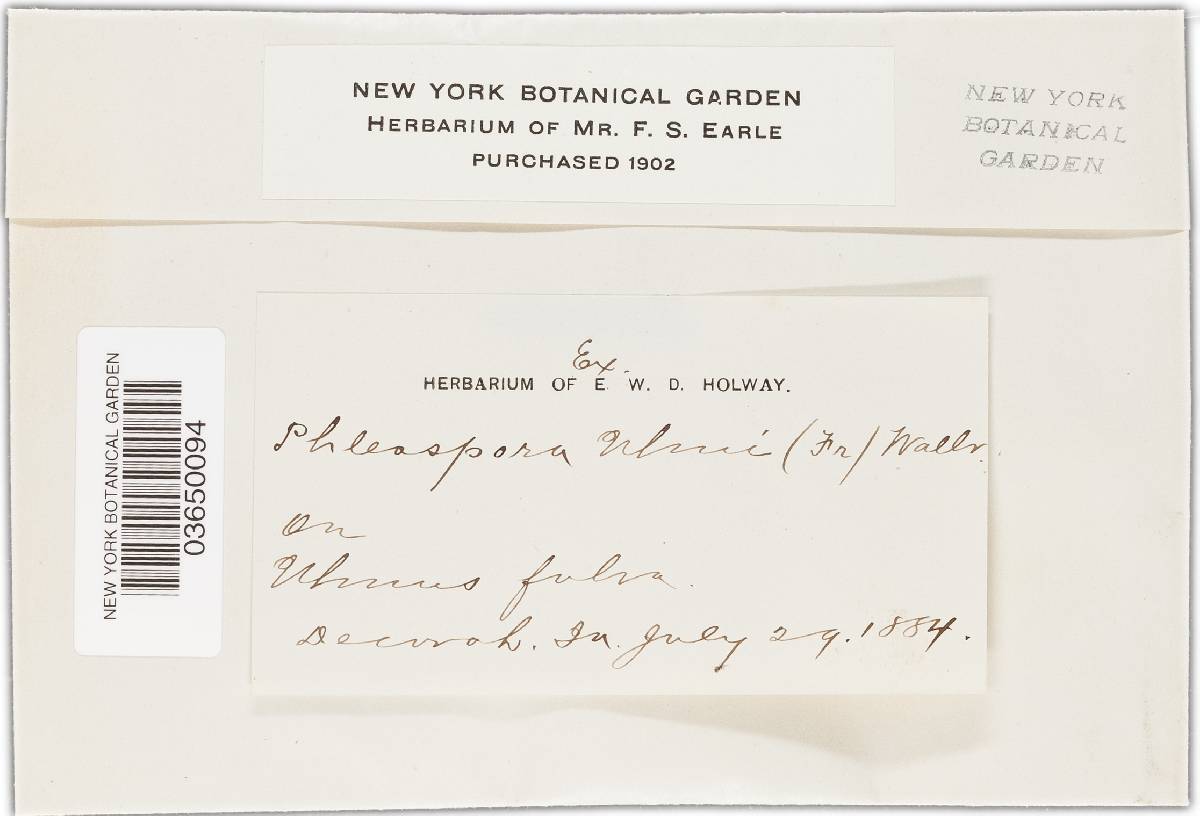 NEW YORK BOTANICAL GARDEN
HERBARIUM OF MR. F. S. EARLE
PURCHASED 1902
NEW YORK
BOTANICAL
GARDEN
NEW YORK BOTANICAL GARDEN
03650094
Ex.
HERBARIUM OF E. W. D. HOLWAY.
Phleospora Ulmi (Fr) Wallr.
On
Ulmus fulva.
Decorah. Ia. July 29. 1884.